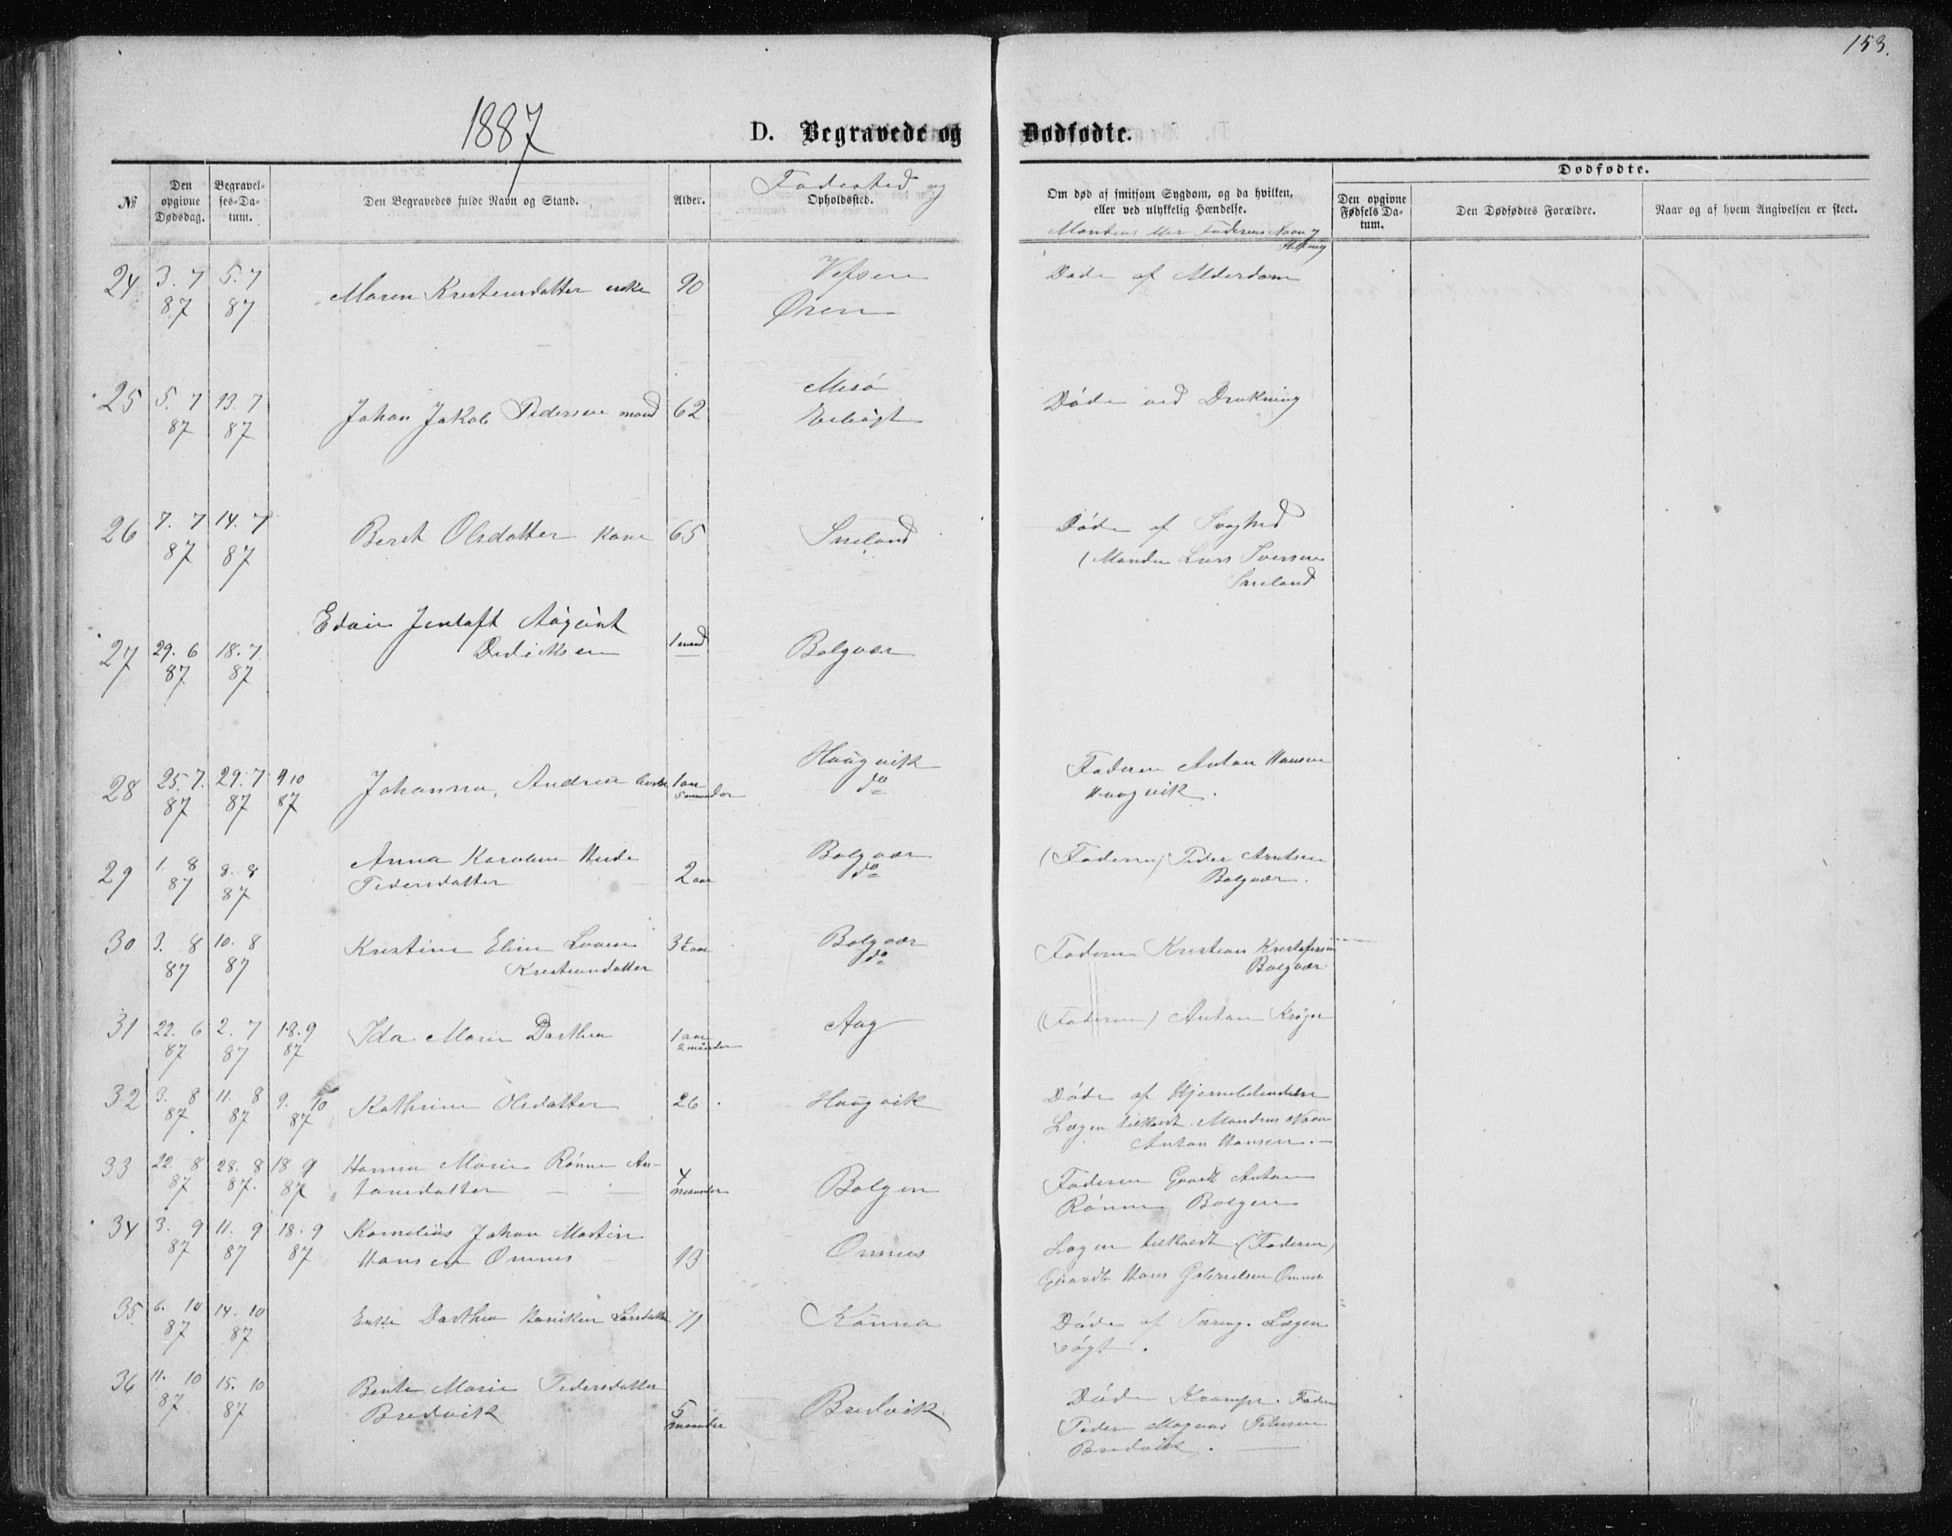 153.
1887
D. Begravede og Dødfødte.
№
Den opgivne Dødsdag.
Begravelses-Datum.
Den Begravedes fulde Navn og Stand.
Alder.
Fødested og
Opholdssted.
Om død af smitsom Sygdom, og da hvilken,
eller ved ulykkelig Hændelse.
Mandens eller Faderens Navn og
Dødfødte.
Den opgivne Fødsels Datum.
Den Dødfødtes Forældre.
Naar og af hvem Angivelsen er skeet.
24 3. 7 87 5. 7 87 Maren Kristensdatter enke 90 Vefsen
Øren
Døde af Alderdom
25 5. 7 87 13. 7 87 Johan Jakob Pedersen mand 62 Mesø
Døde ved Drukning
26 7. 7 87 14. 7 87 Beret Olsdatter Kone 65 Sneland
Døde af Svaghed
(Manden Lars Iversen
Sneland
27 29. 6 87 18. 7 87 Edvin Jentoft Aügüst
Dediksen 1 mnd Bolgvær
28 25. 7. 87 29. 7 87 9 10 87 Johanna, Andrea 1 aar 5 maander Haügvik
do
Faderen Anton Hansen
Haugvik.
29 1. 8 87 8. 8 87 Anna Karoline
Pedersdatter 2 aar Bolgvær
do
(Faderen) Peder Arntsen
Bolgvær.
30 3. 8 87 10. 8 87 Kristine Eline
Kristiansdatter 3 aar Bolgvær
do
Faderen Kristian Kristofersen
Bolgvær.
31 22. 6 87 2. 7 87 18. 9 87 Ida Marie Dorthea 1 aar 2 månder Aag
(Faderen) Anton Krøger
32 3. 8 87 11. 8 87 9. 10 87 Kathrine Olsdatter 26. Haügvik
Døde af
Lægen tilkaldt. Mandens Navn
Anton Hansen. —
33 22. 8 87 28. 8 87. 18 9 87 Hanna Marie Rønne An-
tonsdatter — — 4 maander Bolgen
Faderen Gaardb Anton
Rønne Bolgen
34 3. 9 87 11. 9 87 18. 9 87 Kornelius Johan Martin
Hansen Omnes 13 Omnes
Lægen tilkaldt. (Faderen)
Gaardb Hans Omnes
35 6. 10 87 14. 10 87 Enke Dorthea Larsdatter 71 Könna
Døde af Tæring. Lægen
søgt.
36 11. 10 87 15. 10 87 Bente Marie Pedersdatter
Bredvik 5 maander Bredvik
Døde Krampe. Fader
Peder Magnus Petersen
Bredvik. —